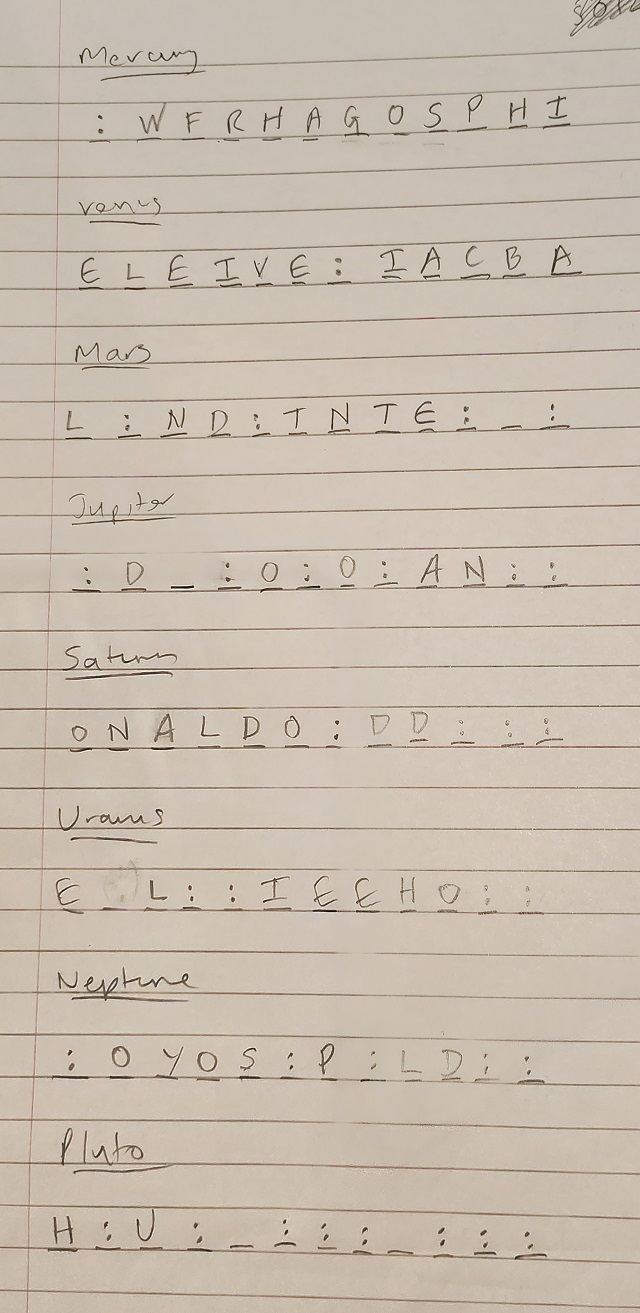 Mercury
: W F R H A G O S P H I
venus
E L E I V E : I A C B A
Mars
L : N D : I N T E : _ :
Jupiter
: D _ : O : O : A N : :
Saturn
O N A L D O : D D : : :
Uranus
E _ L : : I E E H O : :
Neptune
: O Y O S : P : L D : :
Pluto
H : U : _ : : : _ : : :